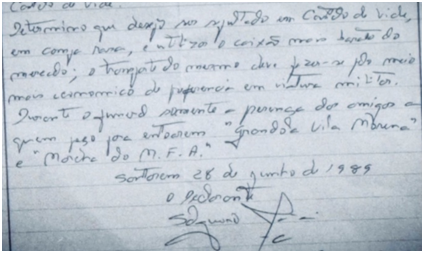 Castelo de Vide.
Determino que desejo ser sepultado em Castelo de Vide,
em campa rasa, e utilizo o caixão mais barato do
mercado, o transporte do mesmo deve fazer-se pelo meio
mais económico de preferência em viatura militar.
Durante o funeral somente a presença dos amigos a
quem peço para entoarem "Grandola Vila Morena"
e "Marcha do M.F.A."
Santarem 28 de junho de 1989
O Declarante